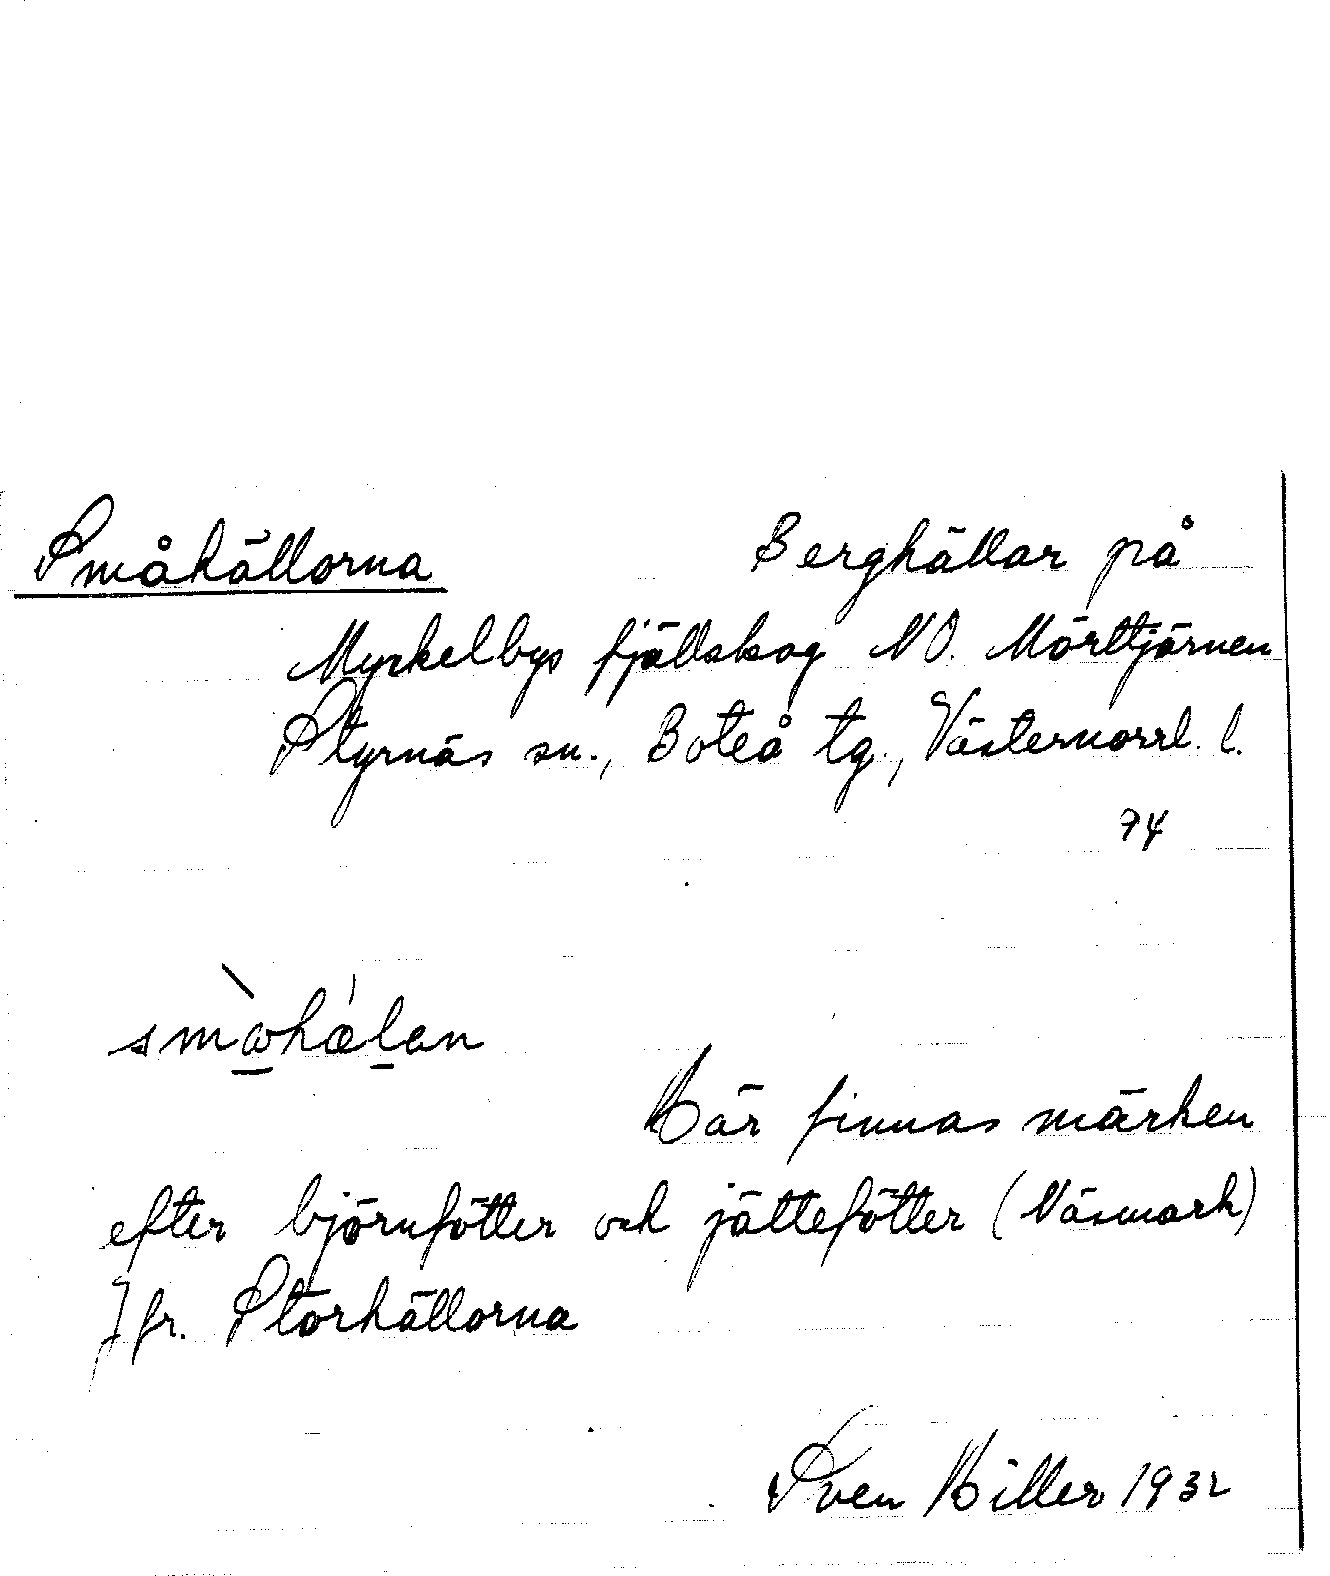 Småhällorna Berghällar på
Myckelbys fjällskog NO. Mörttjärnen
Styrnäs sn., Boteå tg., Västernorrl. l.
74
smωhælan
Här finnas märken
efter björnfötter och jättefötter (Näsmark)
Jfr. Storhällorna
Sven Hiller 1932